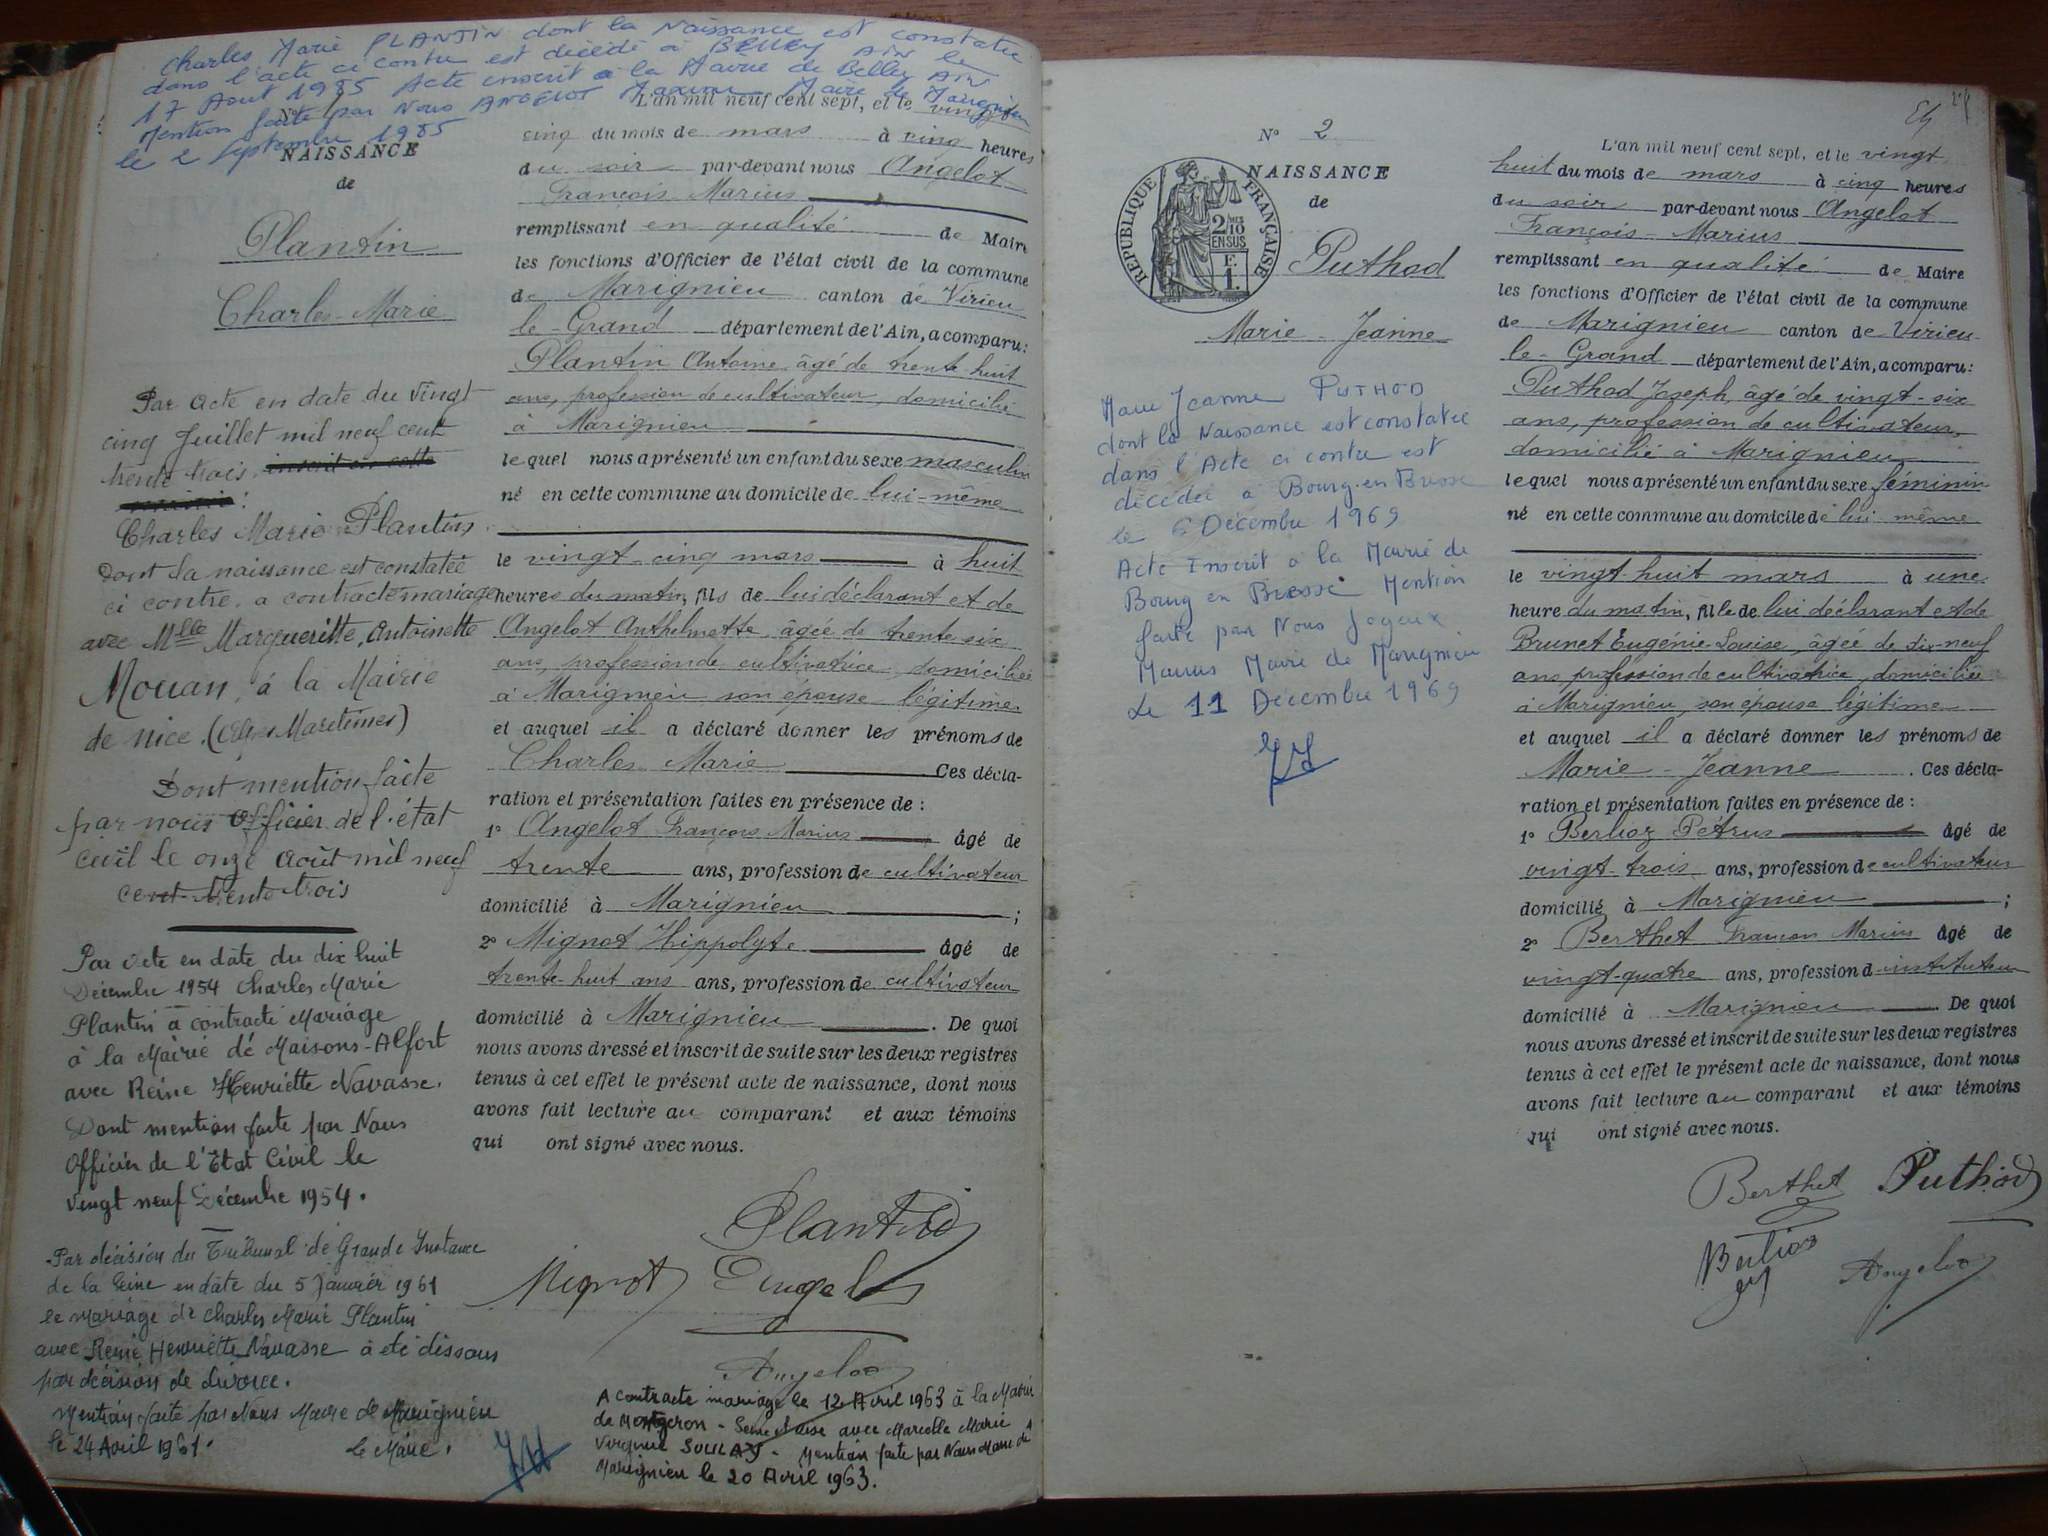 Charles Marie PLANTIN dont la Naissance est constatée
dans l'acte ci contre est décédé à BELLEY AIN le
17 Aout 1985 Acte inscrit à la Mairie de Belley AIN
Mention faite par Nous ANGELOT Maire de Marignieu
le 2 Septembre 1985
NAISSANCE
de
Plantin
Charles-Marie
Par acte en date du vingt
cinq Juillet mil neuf cent
trente trois, inscrit en cette
Charles Marie Plantin
dont la naissance est constatée
ci contre, a contracté mariage
avec Mlle Margueritte, Antoinette
Mouan, à la Mairie
de nice. (Alpes Maritimes)
Dont mention faite
par nous Officier de l'état
civil le onze Août mil neuf
cent trente trois
Par acte en date du dix huit
Décembre 1954 Charles Marie
Plantin a contracté Mariage
à la Mairie de Maisons-Alfort
avec Reine Henriette Navasse.
Dont mention faite par Nous
Officier de l'Etat Civil le
vingt neuf Décembre 1954.
Par décision du Tribunal de Grande Instance
de la Seine en date du 5 Janvier 1961
le mariage de Charles Marie Plantin
avec Reine Henriette Navasse a été dissous
par décision de divorce.
Mention faite par Nous Maire de Marignieu
le 24 Avril 1961. Le Maire.
L'an mil neuf cent sept, et le vingt
cinq du mois de mars à cinq heures
du soir par-devant nous Angelot
François Marius
remplissant en qualité de Maire
les fonctions d'Officier de l'état civil de la commune
de Marignieu canton de Virieu
le-Grand département de l'Ain, a comparu:
Plantin Antoine âgé de trente huit
ans, profession de cultivateur, domicilié
à Marignieu
lequel nous a présenté un enfant du sexe masculin
né en cette commune au domicile de lui-même
le vingt-cinq mars à huit
heures du matin, fils de lui déclarant et de
Angelot Anthelmette, âgée de trente six
ans, profession de cultivatrice, domiciliée
à Marignieu son épouse légitime
et auquel il a déclaré donner les prénoms de
Charles Marie Ces décla-
ration et présentation faites en présence de :
1° Angelot François Marius âgé de
trente ans, profession de cultivateur
domicilié à Marignieu ;
2° Mignot Hippolyte âgé de
trente-huit ans ans, profession de cultivateur
domicilié à Marignieu . De quoi
nous avons dressé et inscrit de suite sur les deux registres
tenus à cet effet le présent acte de naissance, dont nous
avons fait lecture au comparant et aux témoins
qui ont signé avec nous.
Plantin
Mignot Angelot
Angelot
A contracté mariage le 12 Avril 1963 à la Mairie
de Montgeron - Seine et Oise avec Marcelle Marie
Virginie - Mention faite par Nous Maire de
Marignieu le 20 Avril 1963.
N° 2
NAISSANCE
de
RÉPUBLIQUE FRANÇAISE
2/10
EN SUS
F.
1.
Puthod
Marie-Jeanne
Marie Jeanne PUTHOD
dont la Naissance est constatée
dans l'Acte ci contre est
décédée à Bourg-en Bresse
le 6 Décembre 1969
Acte Inscrit à la Mairie de
Bourg en Bresse Mention
faite par Nous Joyeux
Marius Maire de Marignieu
Le 11 Décembre 1969
L'an mil neuf cent sept, et le vingt
huit du mois de mars à cinq heures
du soir par-devant nous Angelot
François-Marius
remplissant en qualité de Maire
les fonctions d'Officier de l'état civil de la commune
de Marignieu canton de Virieu-
le-Grand département de l'Ain, a comparu:
Puthod Joseph, âgé de vingt-six
ans, profession de cultivateur,
domicilié à Marignieu
lequel nous a présenté un enfant du sexe féminin
né en cette commune au domicile de lui même
le vingt huit mars à une
heure du matin, fille de lui déclarant et de
Brunet Eugénie-Louise, âgée de dix-neuf
ans, profession de cultivatrice, domiciliée
à Marignieu, son épouse légitime
et auquel il a déclaré donner les prénoms de
Marie-Jeanne . Ces décla-
ration et présentation faites en présence de :
1° Berlioz Pétrus âgé de
vingt-trois ans, profession de cultivateur
domicilié à Marignieu ;
2° Berthet François Marius âgé de
vingt-quatre ans, profession d instituteur
domicilié à Marignieu . De quoi
nous avons dressé et inscrit de suite sur les deux registres
tenus à cet effet le présent acte de naissance, dont nous
avons fait lecture au comparant et aux témoins
qui ont signé avec nous.
Berthet Puthod
Berlioz Angelot